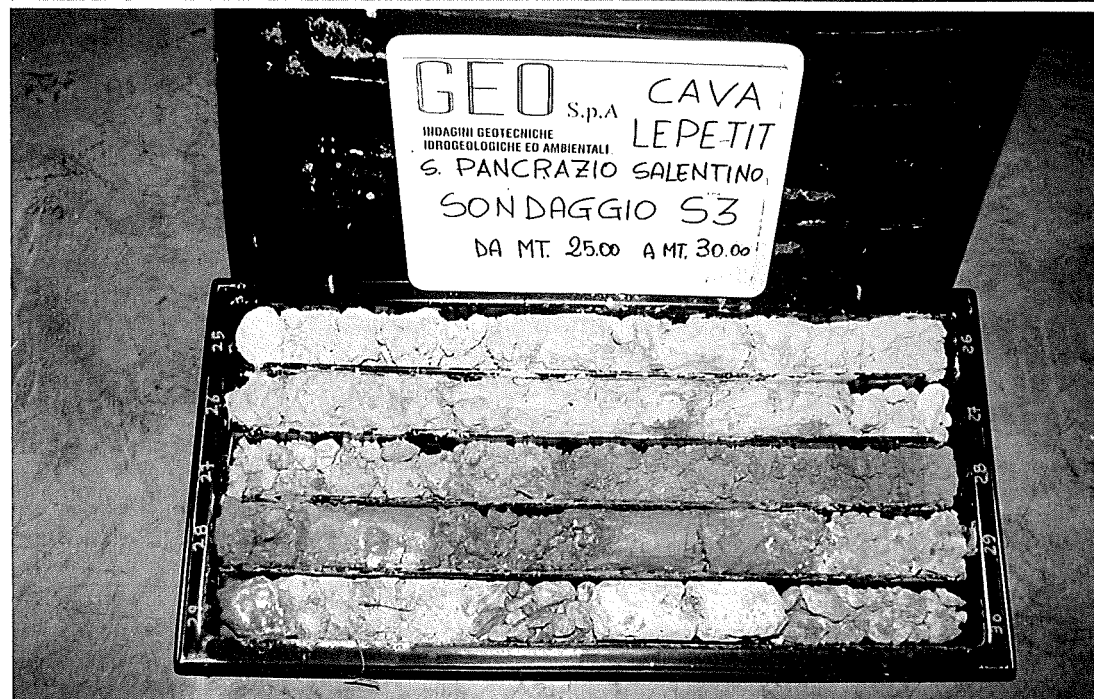 GEO S.p.A
INDAGINI GEOTECNICHE
IDROGEOLOGICHE ED AMBIENTALI
CAVA
LEPETIT
S. PANCRAZIO SALENTINO
SONDAGGIO S3
DA MT. 25.00 A MT. 30.00
25 26
26 27
27 28
28 29
29 30